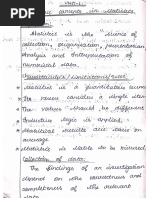 UNIT-1
Basic concepts in statistics
Statistics is the science of
collection, organization, presentation
Analysis and interpretation of
numerical data.
Statistics is a quantitative
The values consist a single
The values should be different
Inductive logic is applied.
Statistical results are on
average.
Statistics is liable to be misused
Collection of data:
The findings of an investigation
depend on the correctness and
completeness of the relevant
data.